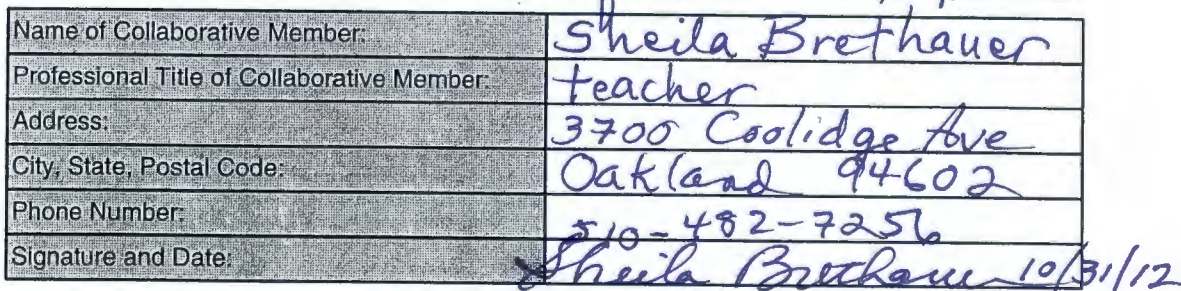 Name of Collaborative Member: Sheila Brethauer
Professional Title of Collaborative Member: teacher
Address: 3700 Coolidge Ave
City, State, Postal Code: Oakland 94602
Phone Number: 510-482-7256
Signature and Date: Sheila Brethauer 10/31/12